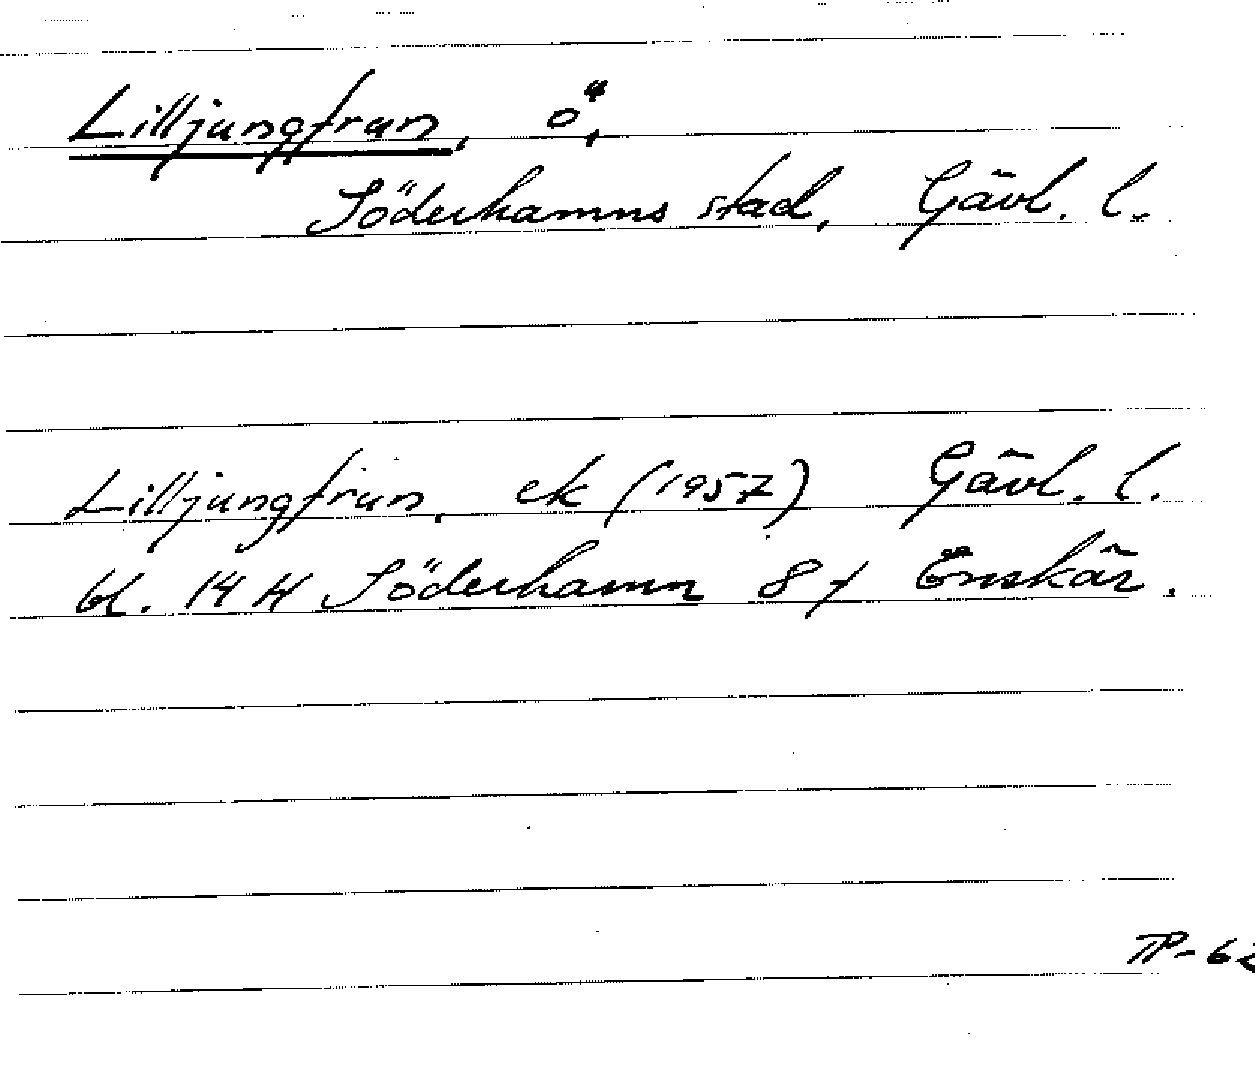 Lilljungfrun, ö,
Söderhamns stad, Gävl. l.
Lilljungfrun, ek (1957) Gävl. l.
bl. 14 H Söderhamn 8 f Enskär.
TP-62